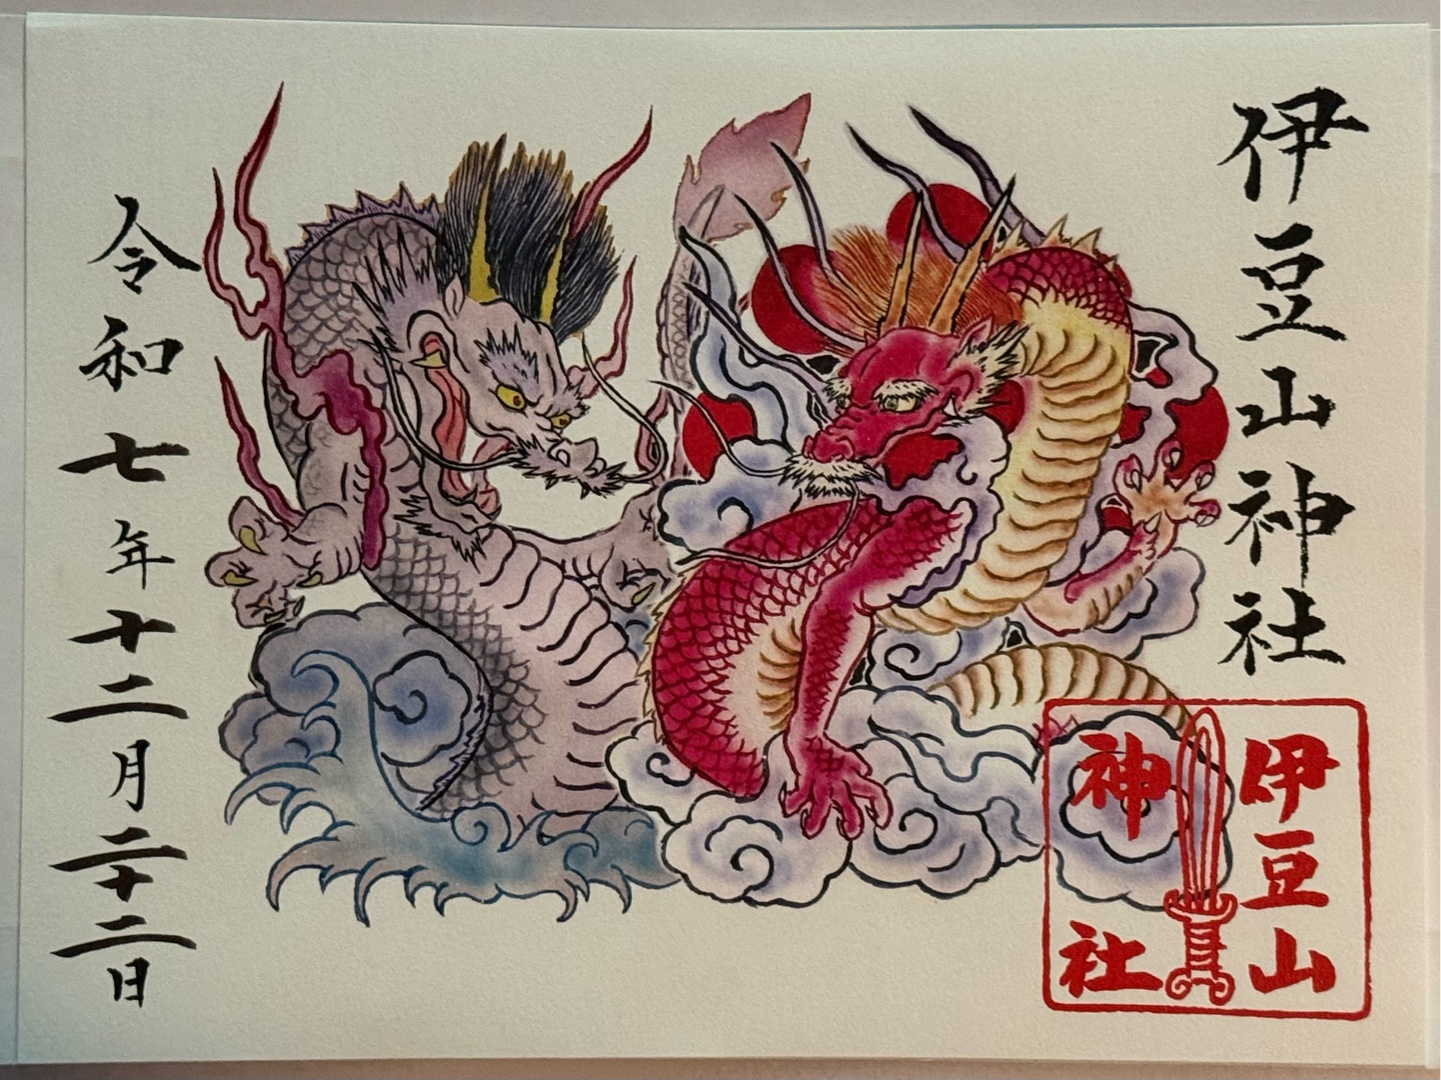 伊豆山神社
伊豆山
神社
令和七年十二月二十二日